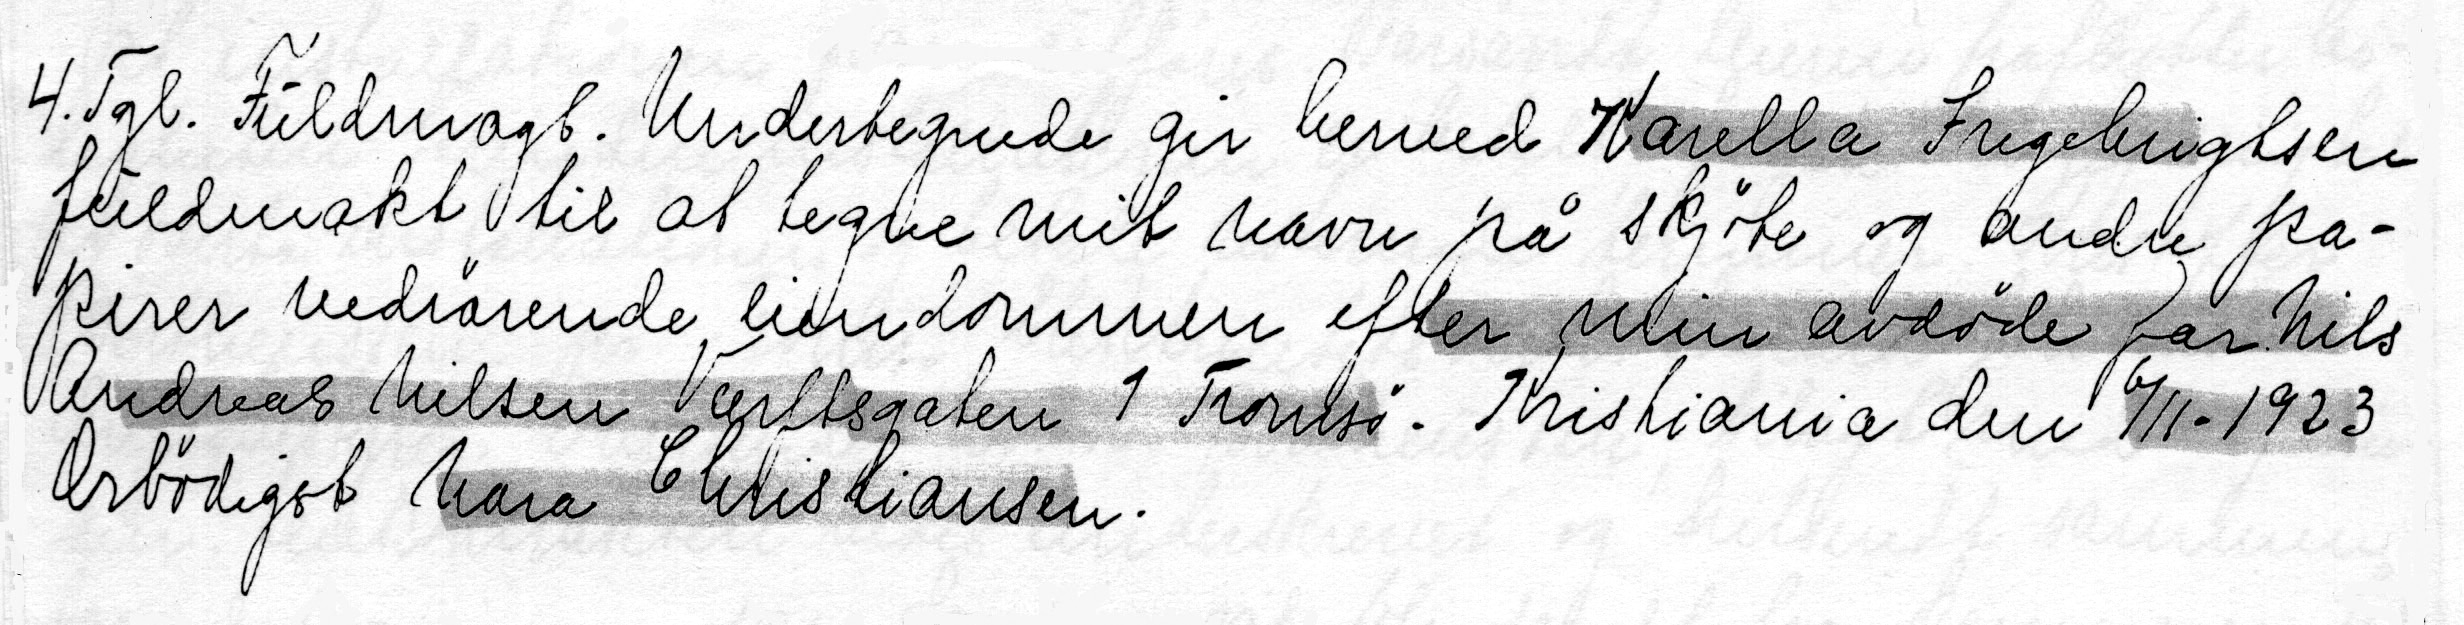 4. Tgl. Fuldmagt. Undertegnede gir herved Karella Ingebrigtsen
fuldmakt til at tegne mit navn på skjöte og andre pa-
pirer vedrörende eiendommen efter min avdöde far Nils
Andreas Nilsen Verftsgaten 1 Tromsö. Kristiania den 6/11-1923
Ærbödigst Nara Christiansen.